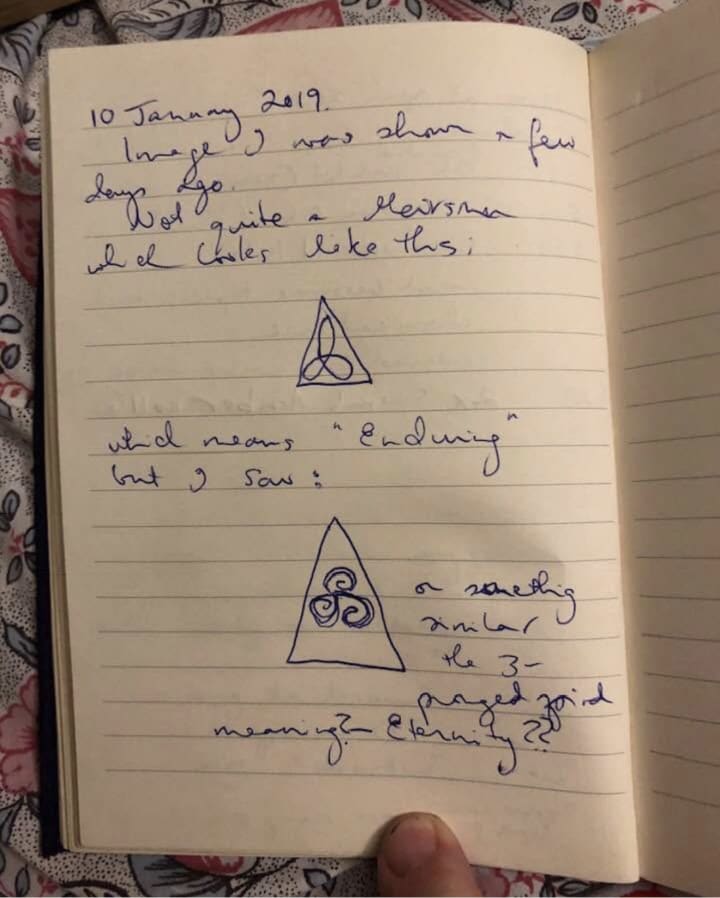 10 January 2019.
Image I was shown a few
days ago.
Not quite a
which looks like this;
which means "Enduring"
but I saw:
or something
similar
the 3-
pronged
meaning? Eternity??